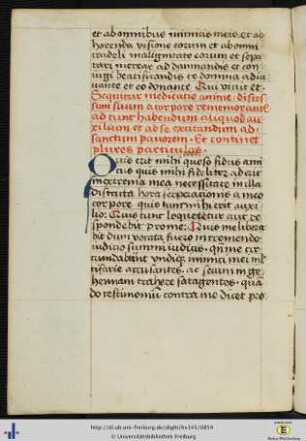 et ab omnibus inimicis meis. et ab
horrenda visione eorum et abomi
malignitate eorum et sepa
rari merear ad dampnandis et con
iugi beatificandis te domino adiu
uante et co donante. Qui viuit et c
Sequitur meditacio anime disces
sum suum a corpore rememorantis
ad tunc habendum aliquod au
xilium et ad se excitandum ad
sanctum pauorem. Et continet
plures particulas.
Quis erit mihi queso fidus ami
cus quis mihi fideliter aderit
in extrema mea necessitate in illa
districta hora separacionis a meo
corpore quis tunc mihi erit auxi
lio. Quis tunc loquetur aut re
spondebit pro me. Quis me libera
bit dum vocatus fuero in tremendo
iudicio summi iudicis. quando me cir
cumdabunt undique inimici mei in
accusantes. ac secum in ge
hennam trahere satagentes. qua
do testimonium contra me dicet pro
http://dl.ub.uni-freiburg.de/diglit/hs141/0854
© Universitätsbibliothek Freiburg